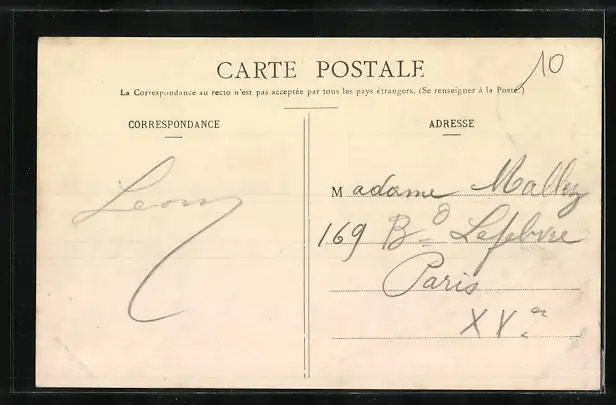 10
CARTE POSTALE
La Correspondance au recto n'est pas acceptée par tous les pays étrangers. (Se renseigner à la Poste.)
CORRESPONDANCE
ADRESSE
Madame Mallez
169 Bd Lefebvre
Paris
XVe